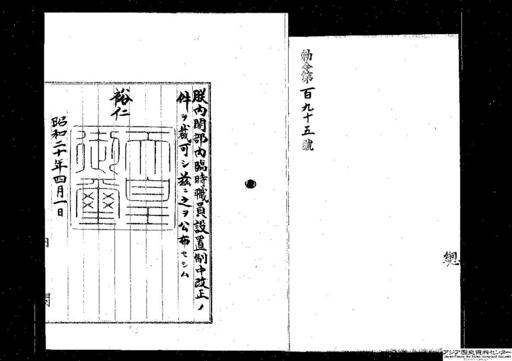 勅令第百九十五號
朕内閣部内臨時職員設置制中改正ノ
件ヲ裁可シ茲ニ之ヲ公布セシム
裕仁
天皇御璽
昭和二十年四月一日
内閣
アジア歴史資料センター